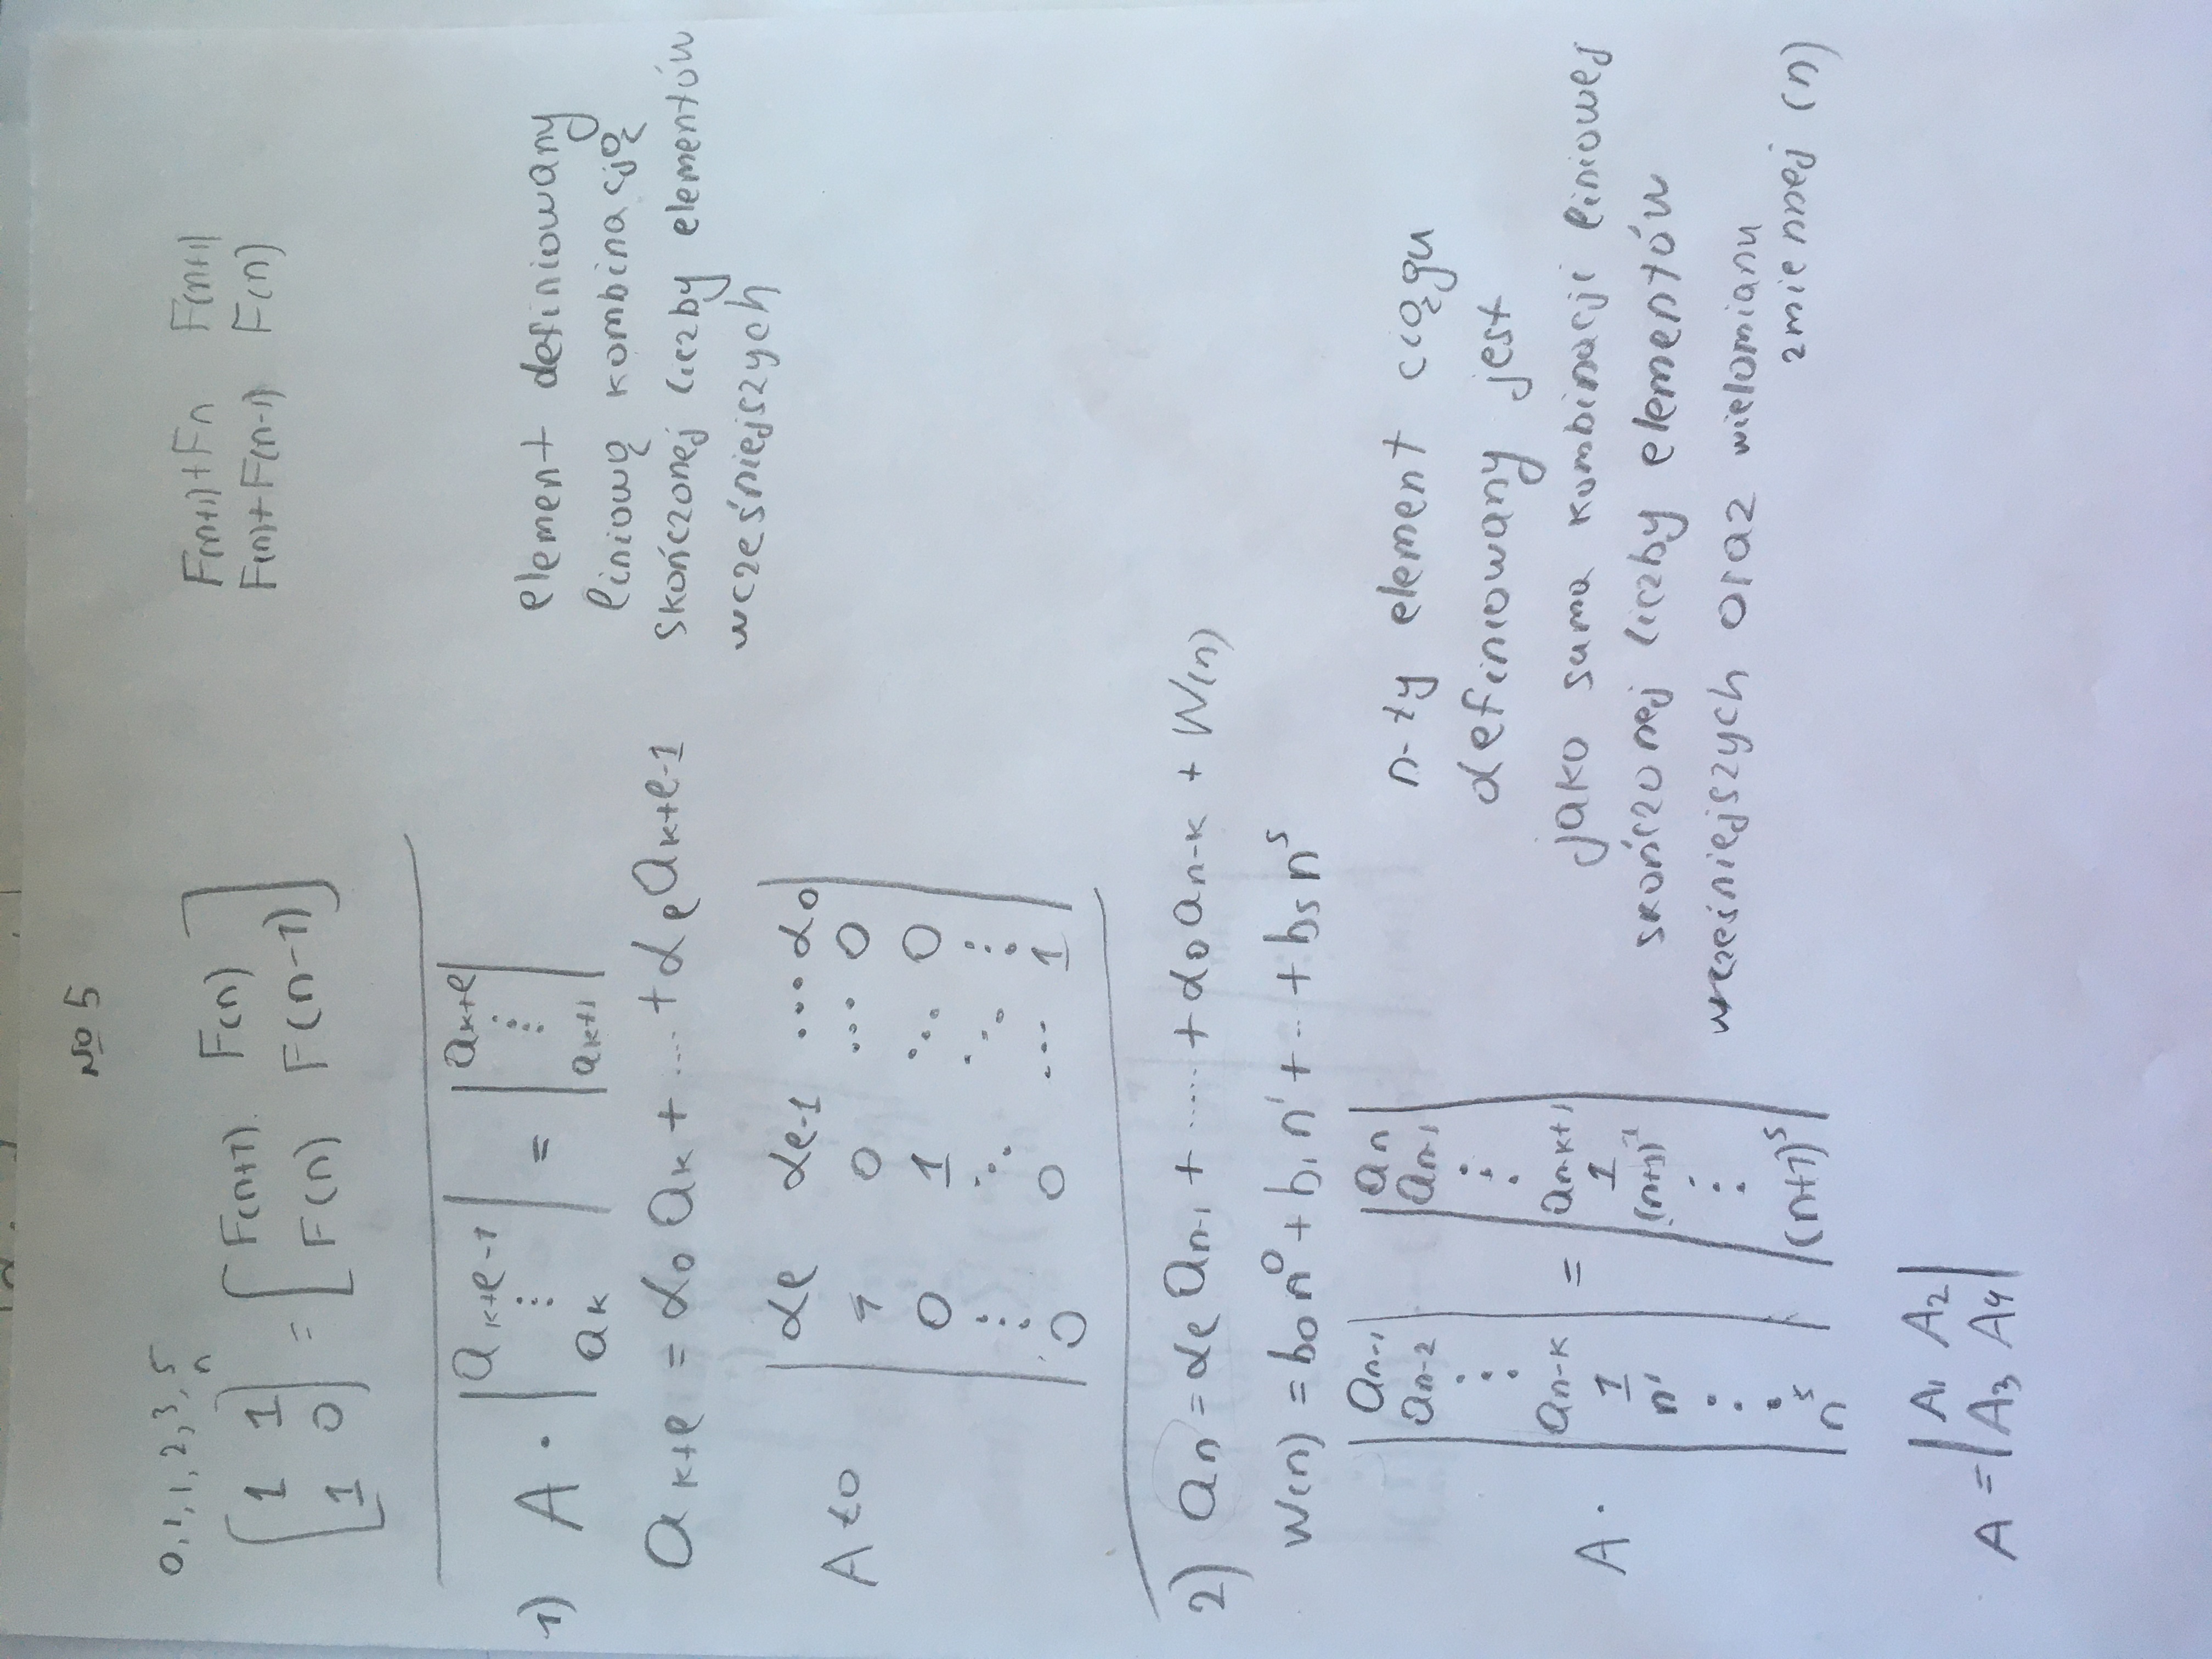 № 5
0, 1, 1, 2, 3, 5
[1 1; 1 0]^n = [F(n+1) F(n); F(n) F(n-1)]
F(n+1)+Fn F(n+1)
F(n)+F(n-1) F(n)
1) A · |a_{k+l-1} ⋮ a_k| = |a_{k+l} ⋮ a_{k+1}|
a_{k+l} = α_0 a_k + ... + α_l a_{k+l-1}
element definiowany
liniową kombinacją
skończonej liczby elementów
wcześniejszych
A to
α_l α_{l-1} ... α_0
1 0 ... 0
0 1 ⋱ 0
⋮ ⋱ ⋱ ⋮
0 0 ... 1
2) a_n = α_l a_{n-1} + ..... + α_0 a_{n-k} + W(n)
W(n) = b_0 n^0 + b_1 n^1 + ... + b_s n^s
A · |a_{n-1} a_{n-2} ⋮ a_{n-k} 1 n^1 ⋮ n^s| = |a_n a_{n-1} ⋮ a_{n-k+1} 1 (n+1)^1 ⋮ (n+1)^s|
n-ty element ciągu
definiowany jest
jako suma kombinacji liniowej
skończonej liczby elementów
wcześniejszych oraz wielomianu
zmiennej (n)
A = |A_1 A_2; A_3 A_4|